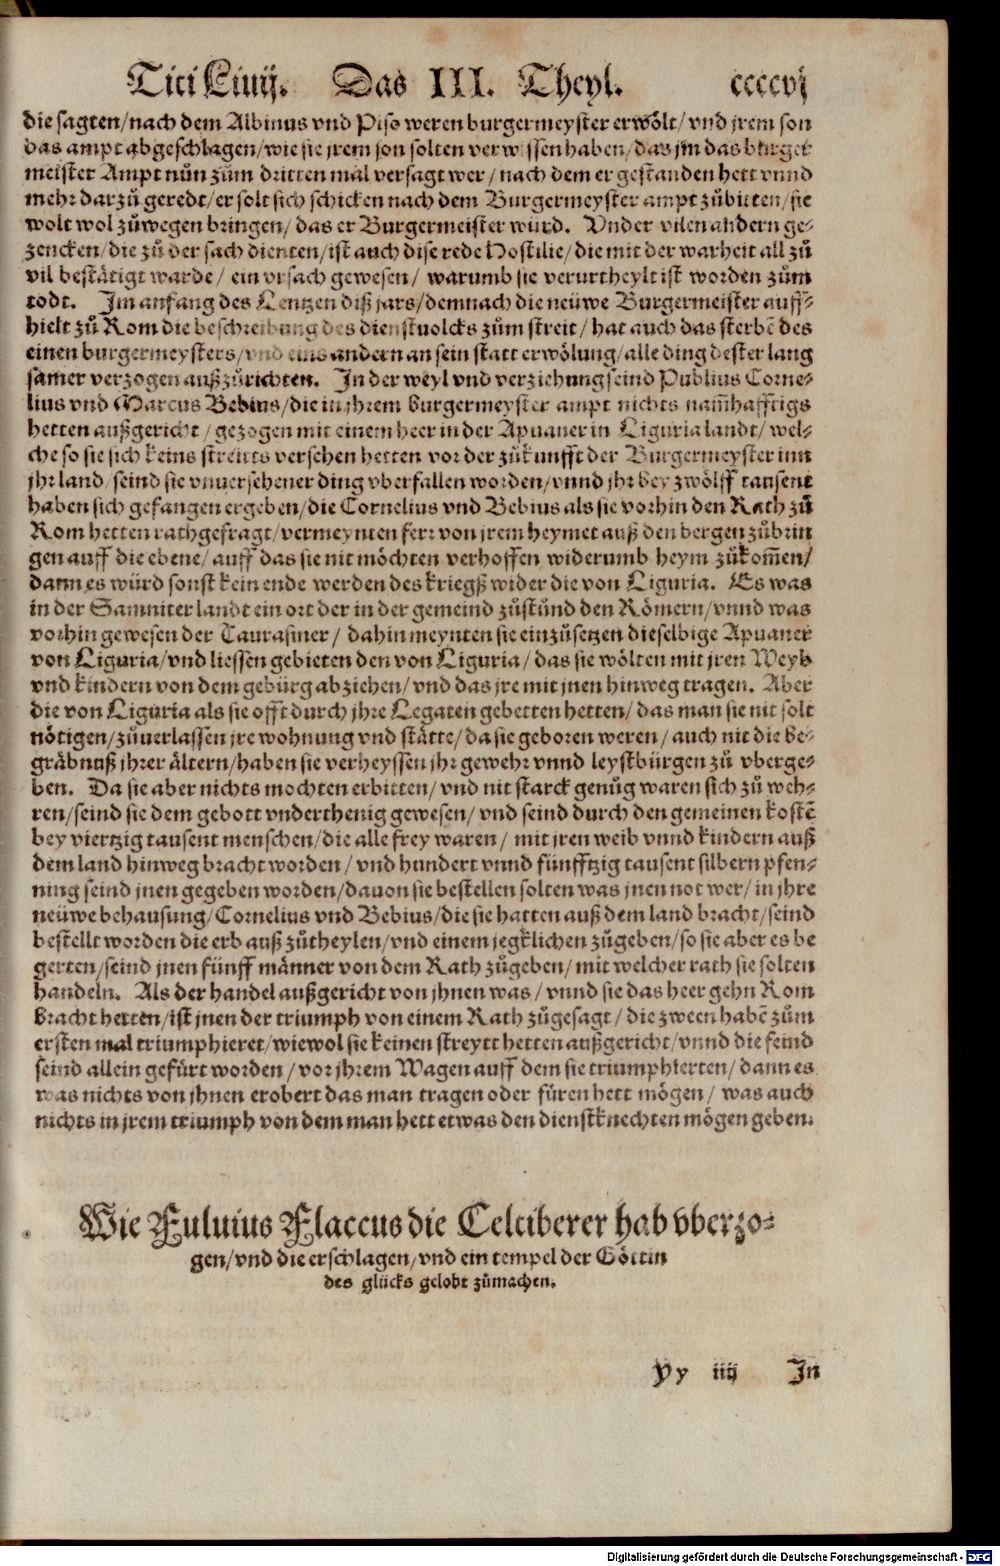 Titi Liuij. Das III. Theyl. ccccvj
die sagten/nach dem Albinus vnd Piso weren burgermeyster erwölt/vnd jrem son
das ampt abgeschlagen/wie sie jrem son solten verwissen haben/das jm das burger
meister Ampt nůn zům dritten mal versagt wer/nach dem er gestanden hett vnnd
mehr darzů geredt/er solt sich schicken nach dem Burgermeyster ampt zůbitten/sie
wolt wol zůwegen bringen/das er Burgermeister würd. Vnder vilen andern ge-
zencken/die zů der sach dienten/ist auch dise rede Hostilie/die mit der warheit all zů
vil bestätigt warde/ein vrsach gewesen/warumb sie verurtheylt ist worden zům
todt. Im anfang des Lentzen diß jars/demnach die neüwe Burgermeister auff-
hielt zů Rom die beschreibung des dienstuolcks zům streit/hat auch das sterbē des
einen burgermeysters/vnd eins andern an sein statt erwölung/alle ding dester lang
samer verzogen außzůrichten. In der weyl vnd verziehung seind Publius Corne-
lius vnd Marcus Bebius/die in jhrem burgermeyster ampt nichts nam̄hafftigs
hetten außgericht/gezogen mit einem heer in der Apuaner in Liguria landt/wel-
che so sie sich keins streitts versehen hetten vor der zůkunfft der Burgermeyster inn
jhr land/seind sie vnuersehener ding vberfallen worden/vnnd jhr bey zwölff tausent
haben sich gefangen ergeben/die Cornelius vnd Bebius als sie vorhin den Rath zů
Rom hetten rathgefragt/vermeynten ferr von jrem heymet auß den bergen zůbrin
gen auff die ebene/auff das sie nit möchten verhoffen widerumb heym zůkom̄en/
dann es würd sonst kein ende werden des kriegß wider die von Liguria. Es was
in der Samniter landt ein ort der in der gemeind zůstůnd den Römern/vnnd was
vorhin gewesen der Taurasiner/dahin meynten sie einzůsetzen dieselbige Apuaner
von Liguria/vnd liessen gebieten den von Liguria/das sie wölten mit jren Weyb
vnd kindern von dem gebürg abziehen/vnd das jre mit jnen hinweg tragen. Aber
die von Liguria als sie offt durch jhre Legaten gebetten hetten/das man sie nit solt
nötigen/zůuerlassen jre wohnung vnd stätte/da sie geboren weren/auch nit die be-
gräbnuß jhrer ältern/haben sie verheyssen jhr gewehr vnnd leystbürgen zů vberge-
ben. Da sie aber nichts mochten erbitten/vnd nit starck genůg waren sich zů weh-
ren/seind sie dem gebott vnderthenig gewesen/vnd seind durch den gemeinen kostē
bey viertzig tausent menschen/die alle frey waren/mit jren weib vnnd kindern auß
dem land hinweg bracht worden/vnd hundert vnnd fünfftzig tausent silbern pfen-
ning seind jnen gegeben worden/dauon sie bestellen solten was jnen not wer/in jhre
neüwe behausung/Cornelius vnd Bebius/die sie hatten auß dem land bracht/seind
bestellt worden die erb auß zůtheylen/vnd einem jegklichen zůgeben/so sie aber es be
gerten/seind jnen fünff männer von dem Rath zůgeben/mit welcher rath sie solten
handeln. Als der handel außgericht von jhnen was/vnnd sie das heer gehn Rom
bracht hetten/ist jnen der triumph von einem Rath zůgesagt/die zween habē zům
ersten mal triumphieret/wiewol sie keinen streytt hetten außgericht/vnnd die feind
seind allein gefürt worden/vor jhrem Wagen auff dem sie triumphierten/dann es
was nichts von jhnen erobert das man tragen oder füren hett mögen/was auch
nichts in jrem triumph von dem man hett etwas den dienstknechten mögen geben.
Wie Fuluius Flaccus die Celtiberer hab vberzo-
gen/vnd die erschlagen/vnd ein tempel der Göttin
des glücks gelobt zůmachen.
Yy iiij In
Digitalisierung gefördert durch die Deutsche Forschungsgemeinschaft - DFG